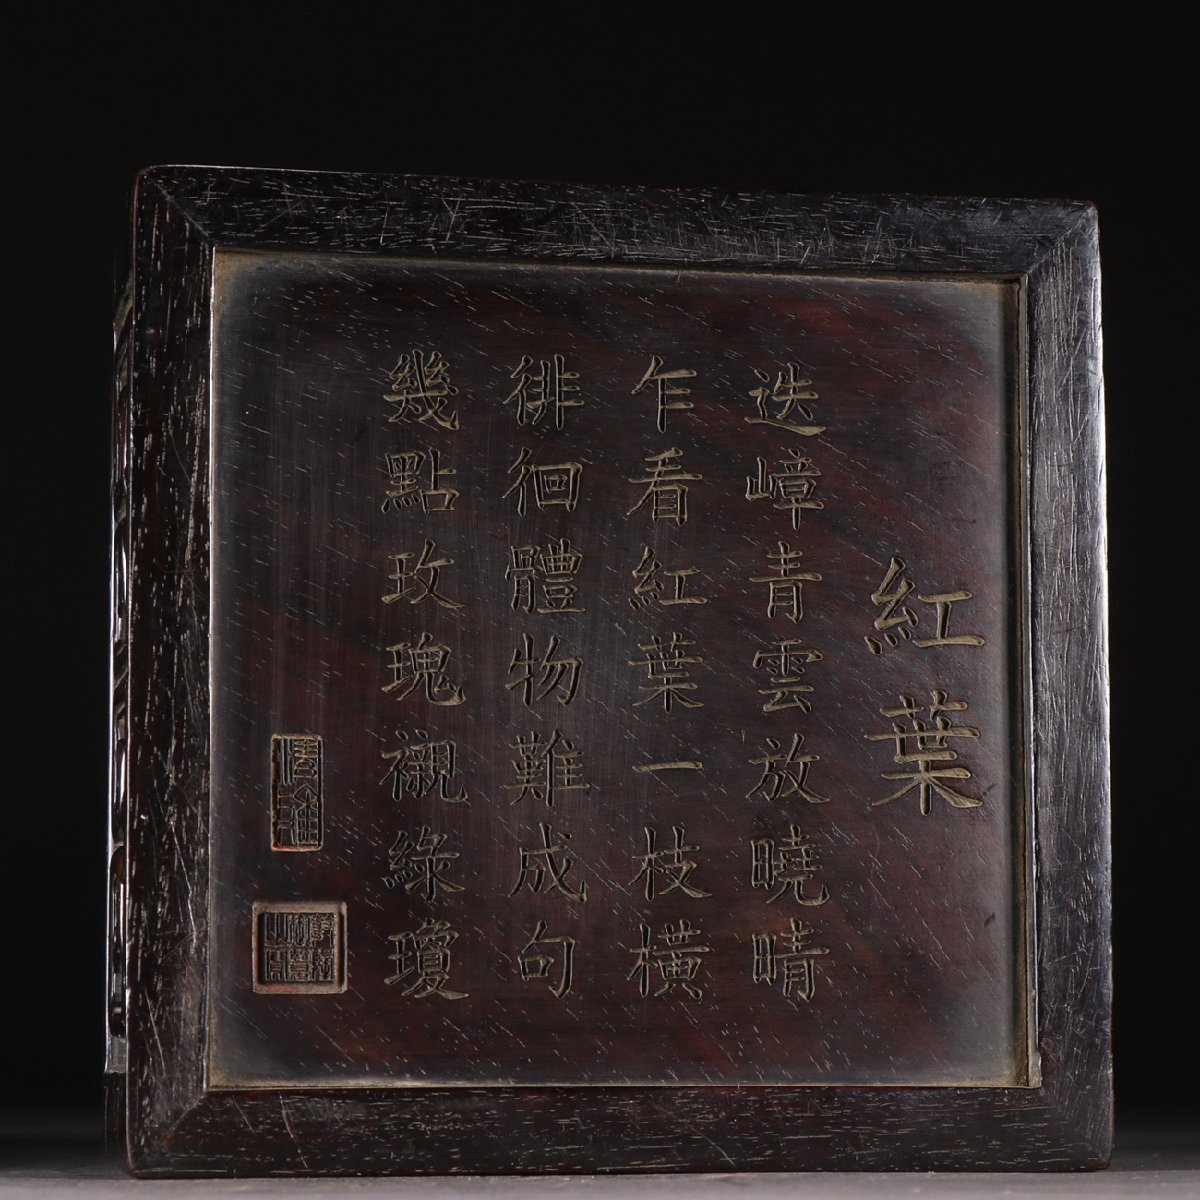 紅葉
迭嶂青雲放曉晴
乍看紅葉一枝橫
徘徊體物難成句
幾點玫瑰襯綠瓊